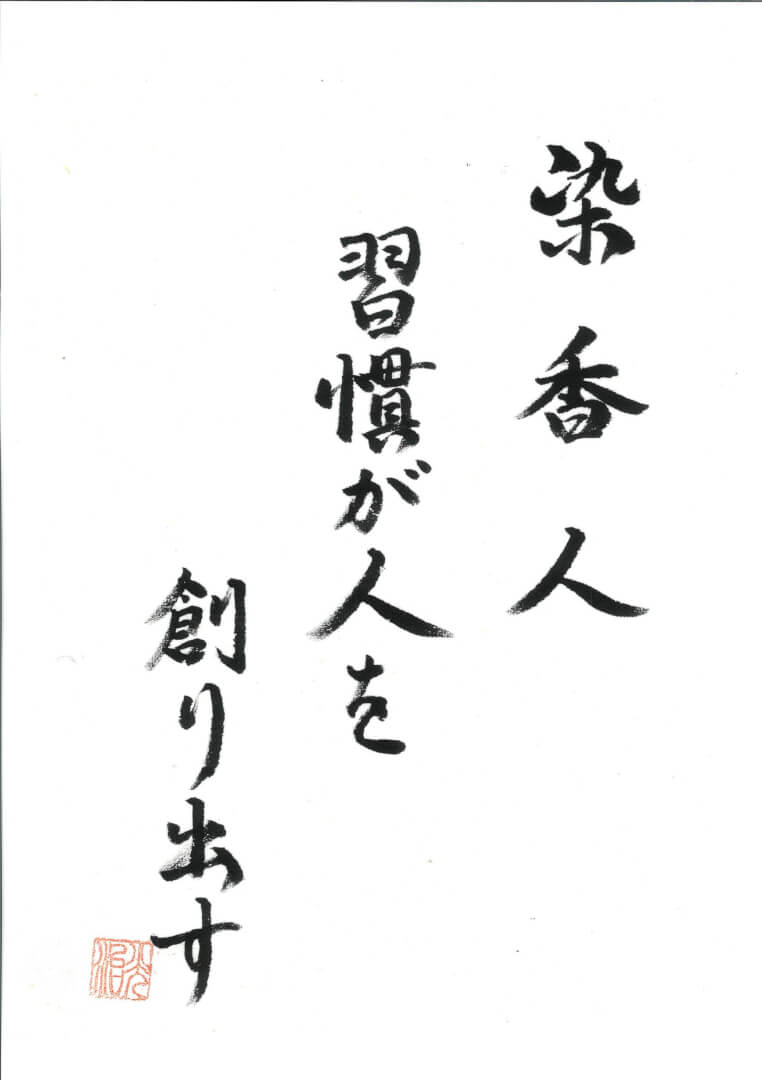 染香人
習慣が人を
創り出す